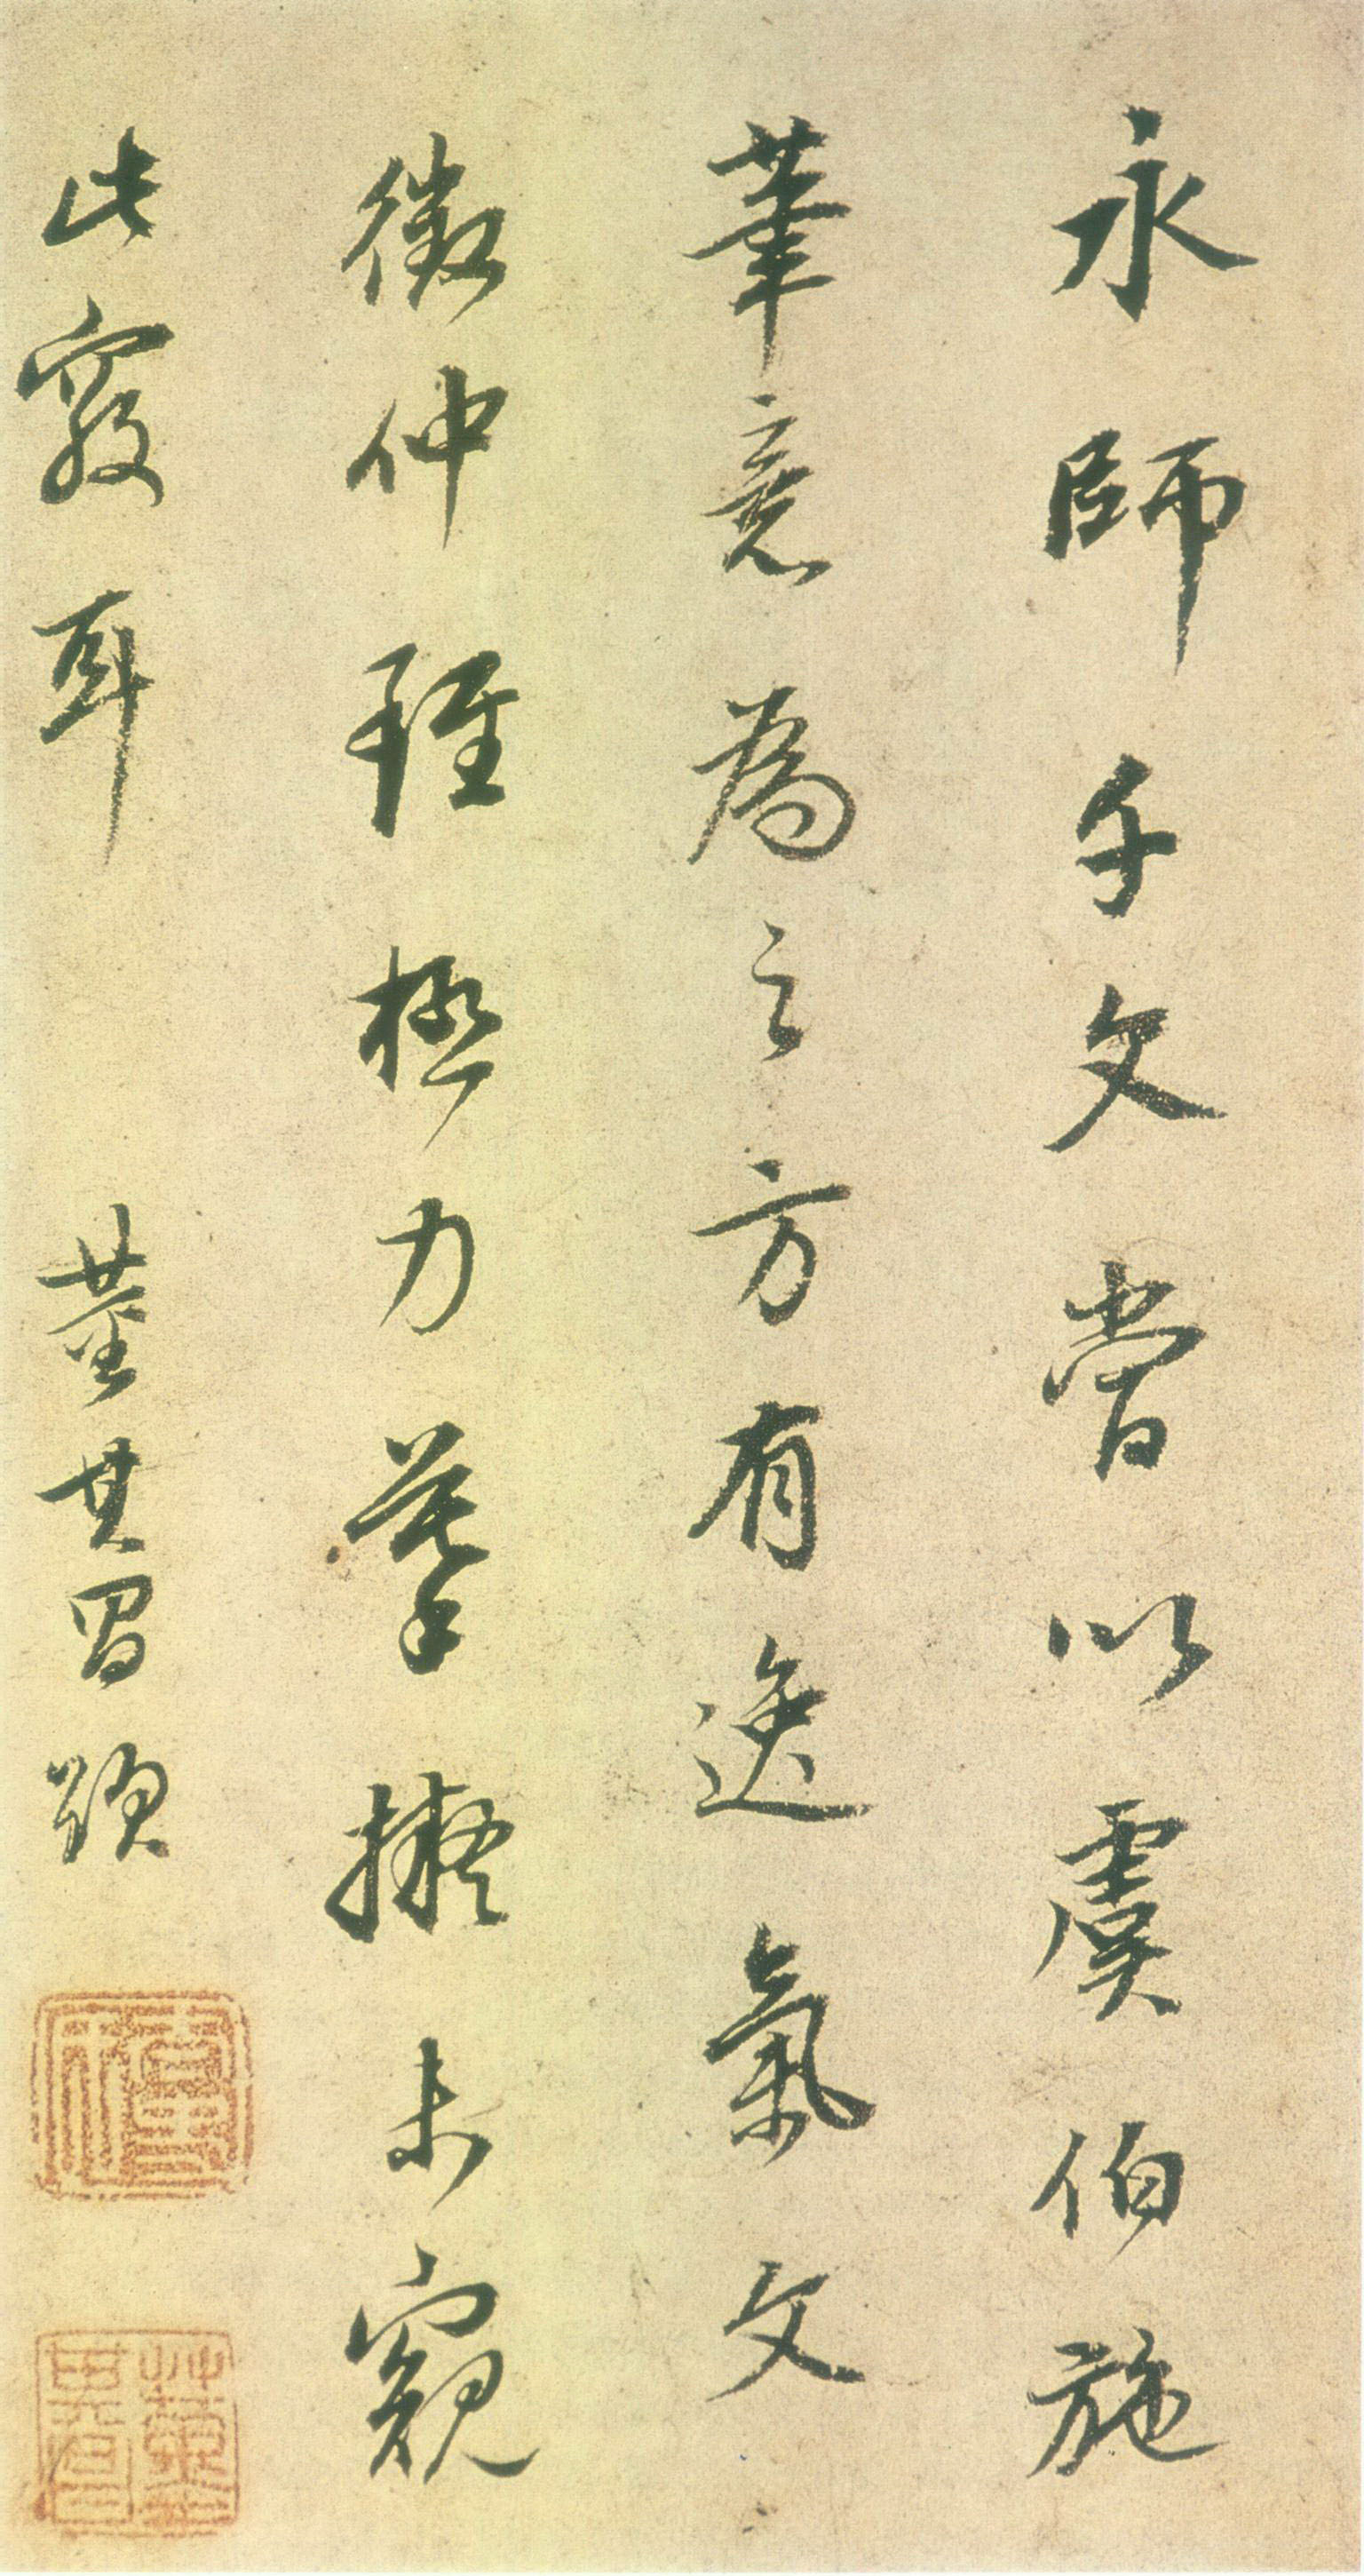 永師千文嘗以虞伯施
筆意為之方有逸氣文
徵仲雖極力摹擬未窺
此竅耳 董其昌題